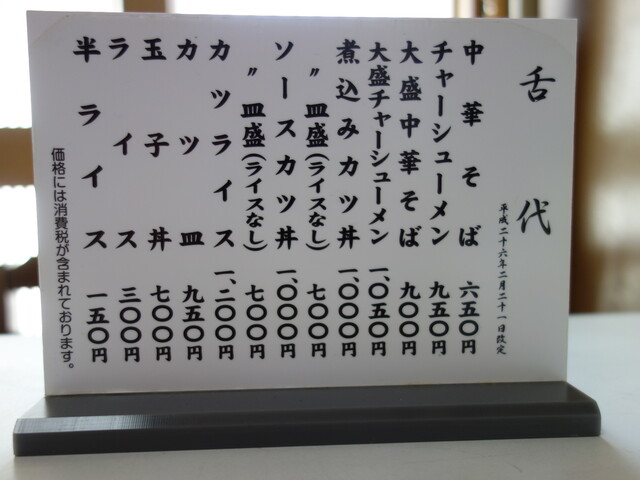 舌代
平成二十六年二月二十一日改定
中華そば 六五〇円
チャーシューメン 九五〇円
大盛中華そば 九〇〇円
大盛チャーシューメン 一、〇五〇円
煮込みカツ丼 一、〇〇〇円
〃 皿盛(ライスなし) 七〇〇円
ソースカツ丼 一、〇〇〇円
〃 皿盛(ライスなし) 七〇〇円
カツライス 一、二〇〇円
カツ皿 九五〇円
玉子丼 七〇〇円
ライス 三〇〇円
半ライス 一五〇円
価格には消費税が含まれております。